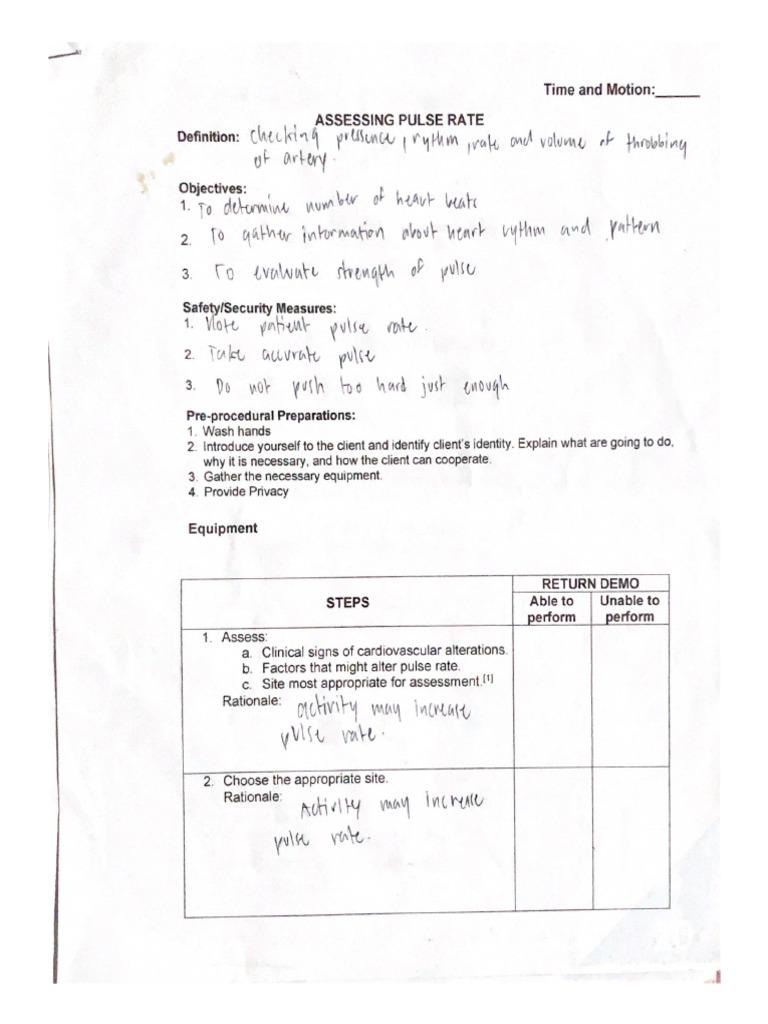 Time and Motion:______
ASSESSING PULSE RATE
Definition: checking pressence, rythm, rate and volume of throbbing
of artery.
Objectives:
1. To determine number of heart beats
2. To gather information about heart rythm and pattern
3. To evaluate strength of pulse
Safety/Security Measures:
1. Note patient pulse rate.
2. Take accurate pulse
3. Do not push too hard just enough
Pre-procedural Preparations:
1. Wash hands
2. Introduce yourself to the client and identify client's identity. Explain what are going to do,
why it is necessary, and how the client can cooperate.
3. Gather the necessary equipment.
4. Provide Privacy
Equipment
STEPS
RETURN DEMO
Able to perform
Unable to perform
1. Assess:
a. Clinical signs of cardiovascular alterations.
b. Factors that might alter pulse rate.
c. Site most appropriate for assessment.[1]
Rationale: activity may increase
pulse rate.
2. Choose the appropriate site.
Rationale: Activity may increase
pulse rate.